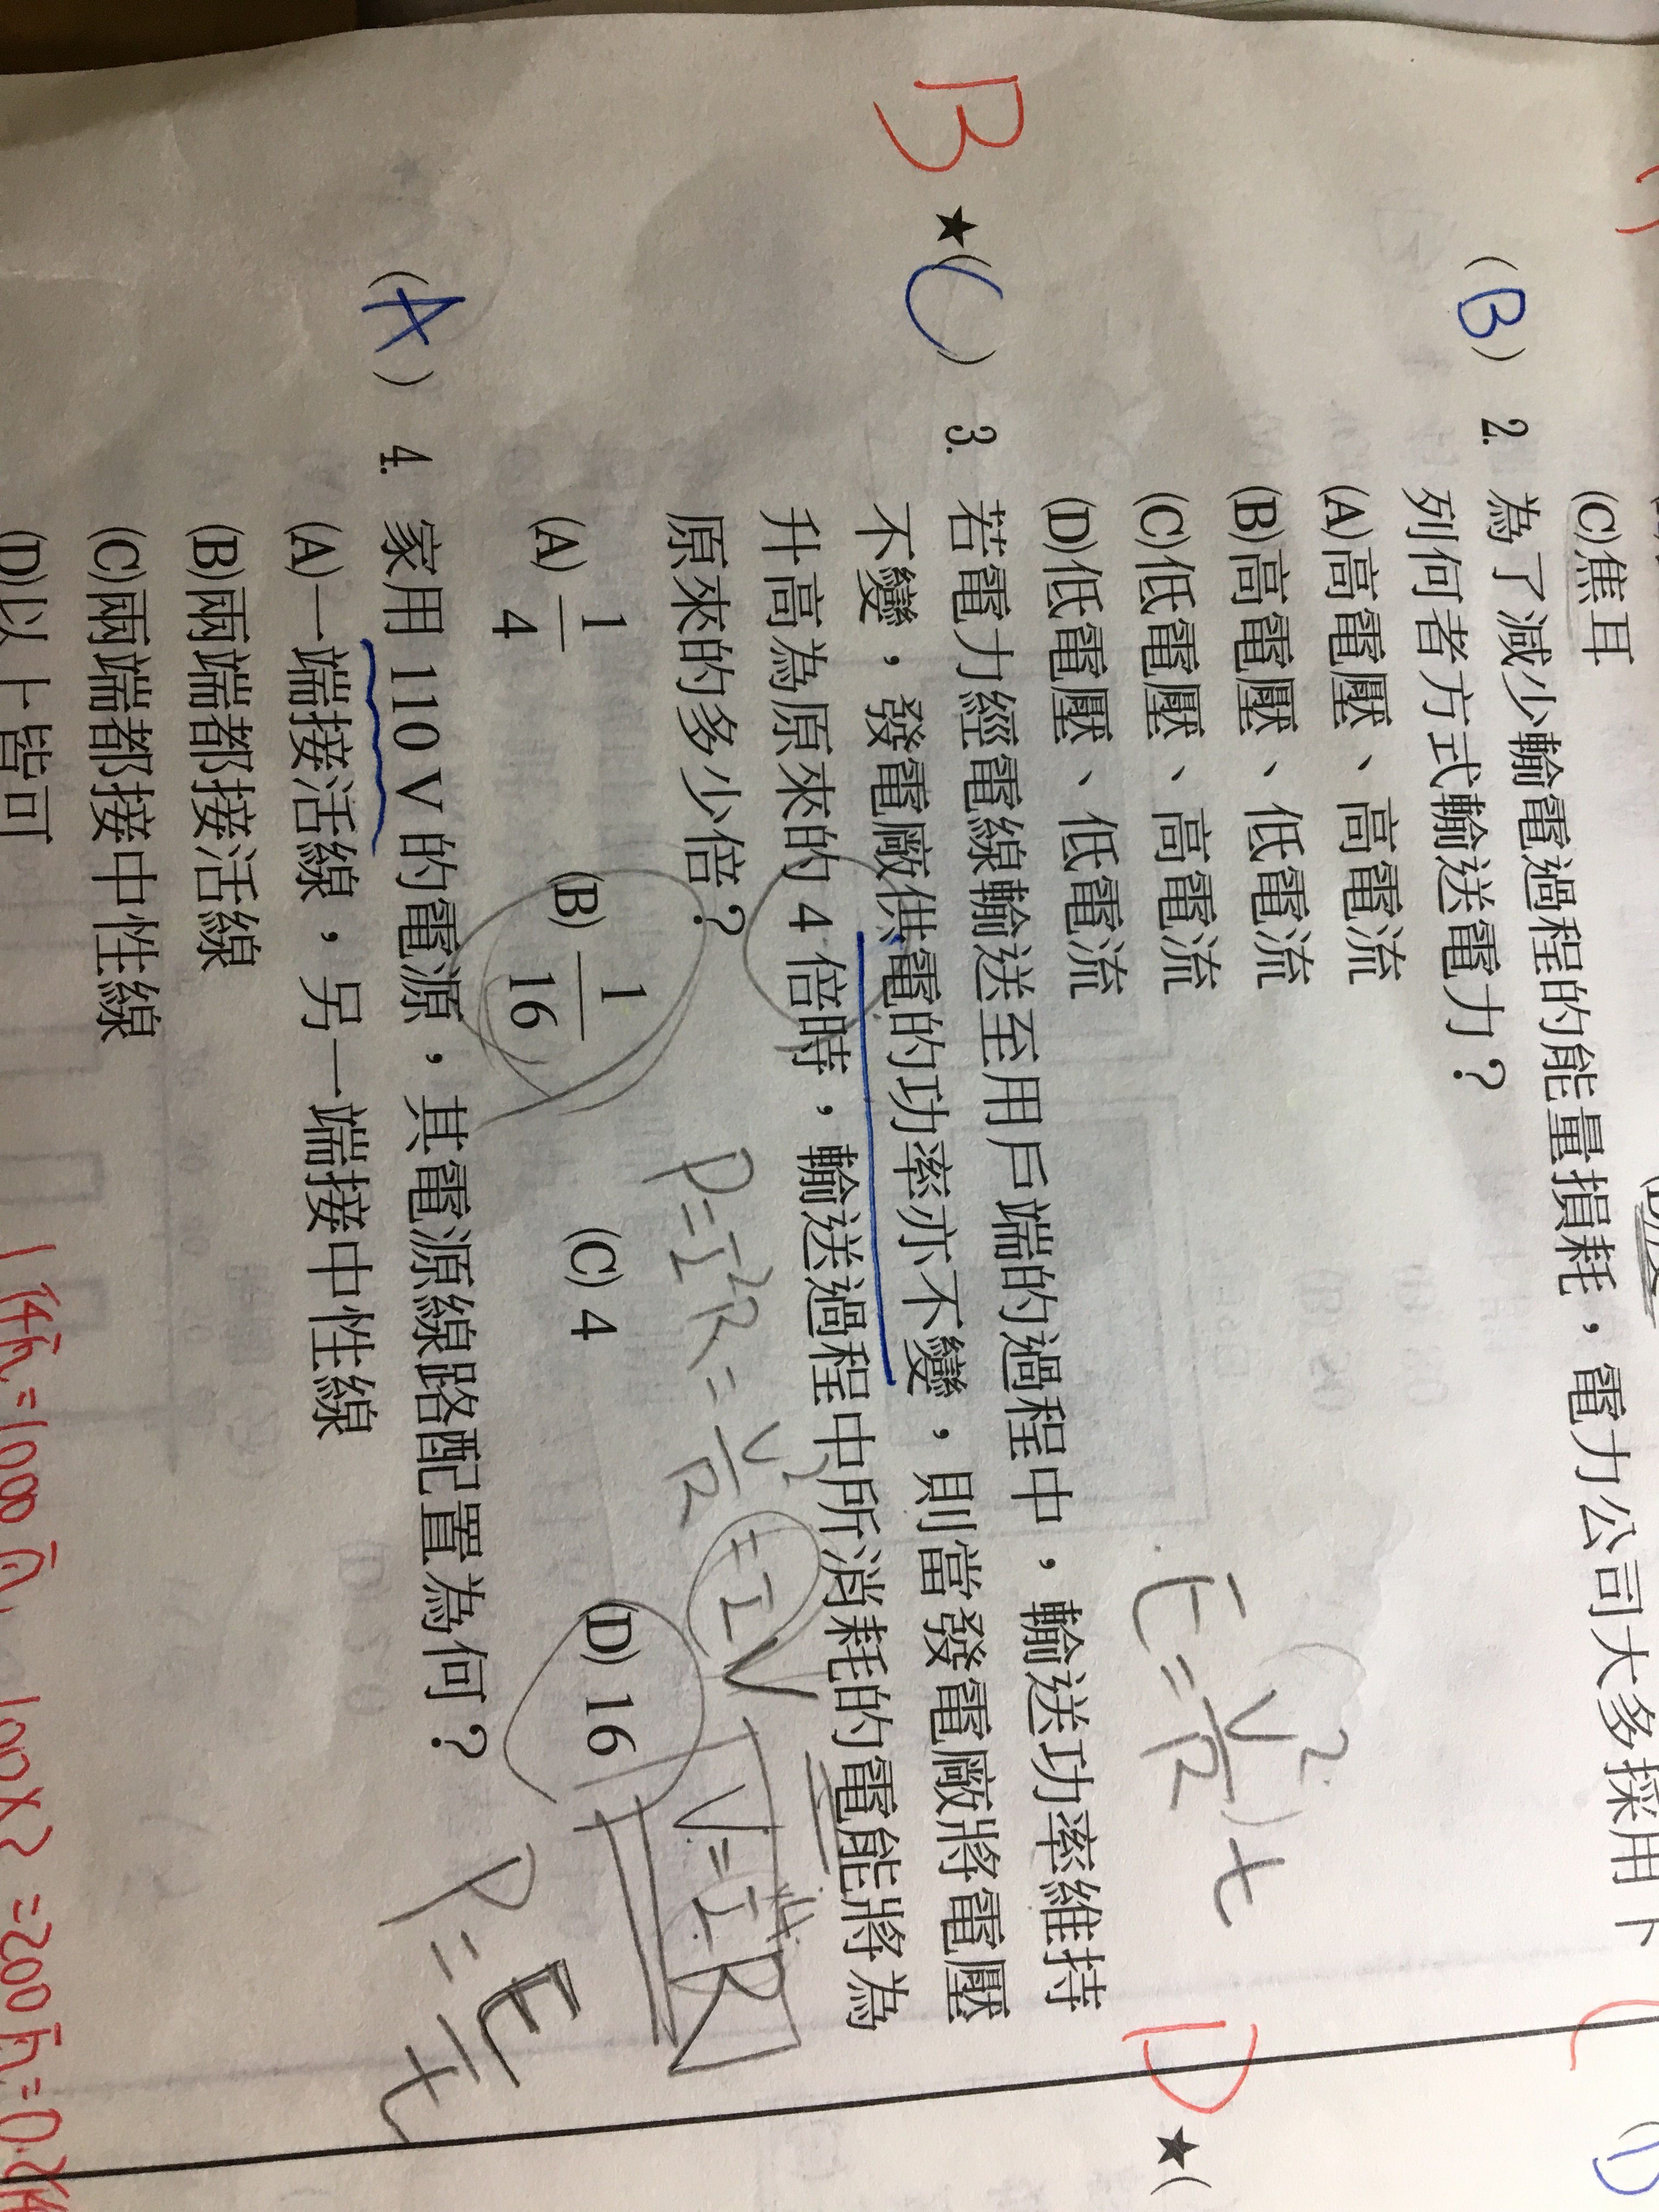 (C)焦耳
(B) 2. 為了減少輸電過程的能量損耗，電力公司大多採用下
列何者方式輸送電力？
(A)高電壓、高電流
(B)高電壓、低電流
(C)低電壓、高電流
(D)低電壓、低電流
E=(V²/R)t
B ★(C) 3. 若電力經電線輸送至用戶端的過程中，輸送功率維持
不變，發電廠供電的功率亦不變，則當發電廠將電壓
升高為原來的 4 倍時，輸送過程中所消耗的電能將為
原來的多少倍？
P=I²R=V²/R=IV
V=IR
(A) 1/4 (B) 1/16 (C) 4 (D) 16
P=E/t
(A) 4. 家用 110 V 的電源，其電源線路配置為何？
(A)一端接活線，另一端接中性線
(B)兩端都接活線
(C)兩端都接中性線
(D)以上皆可
D
★(